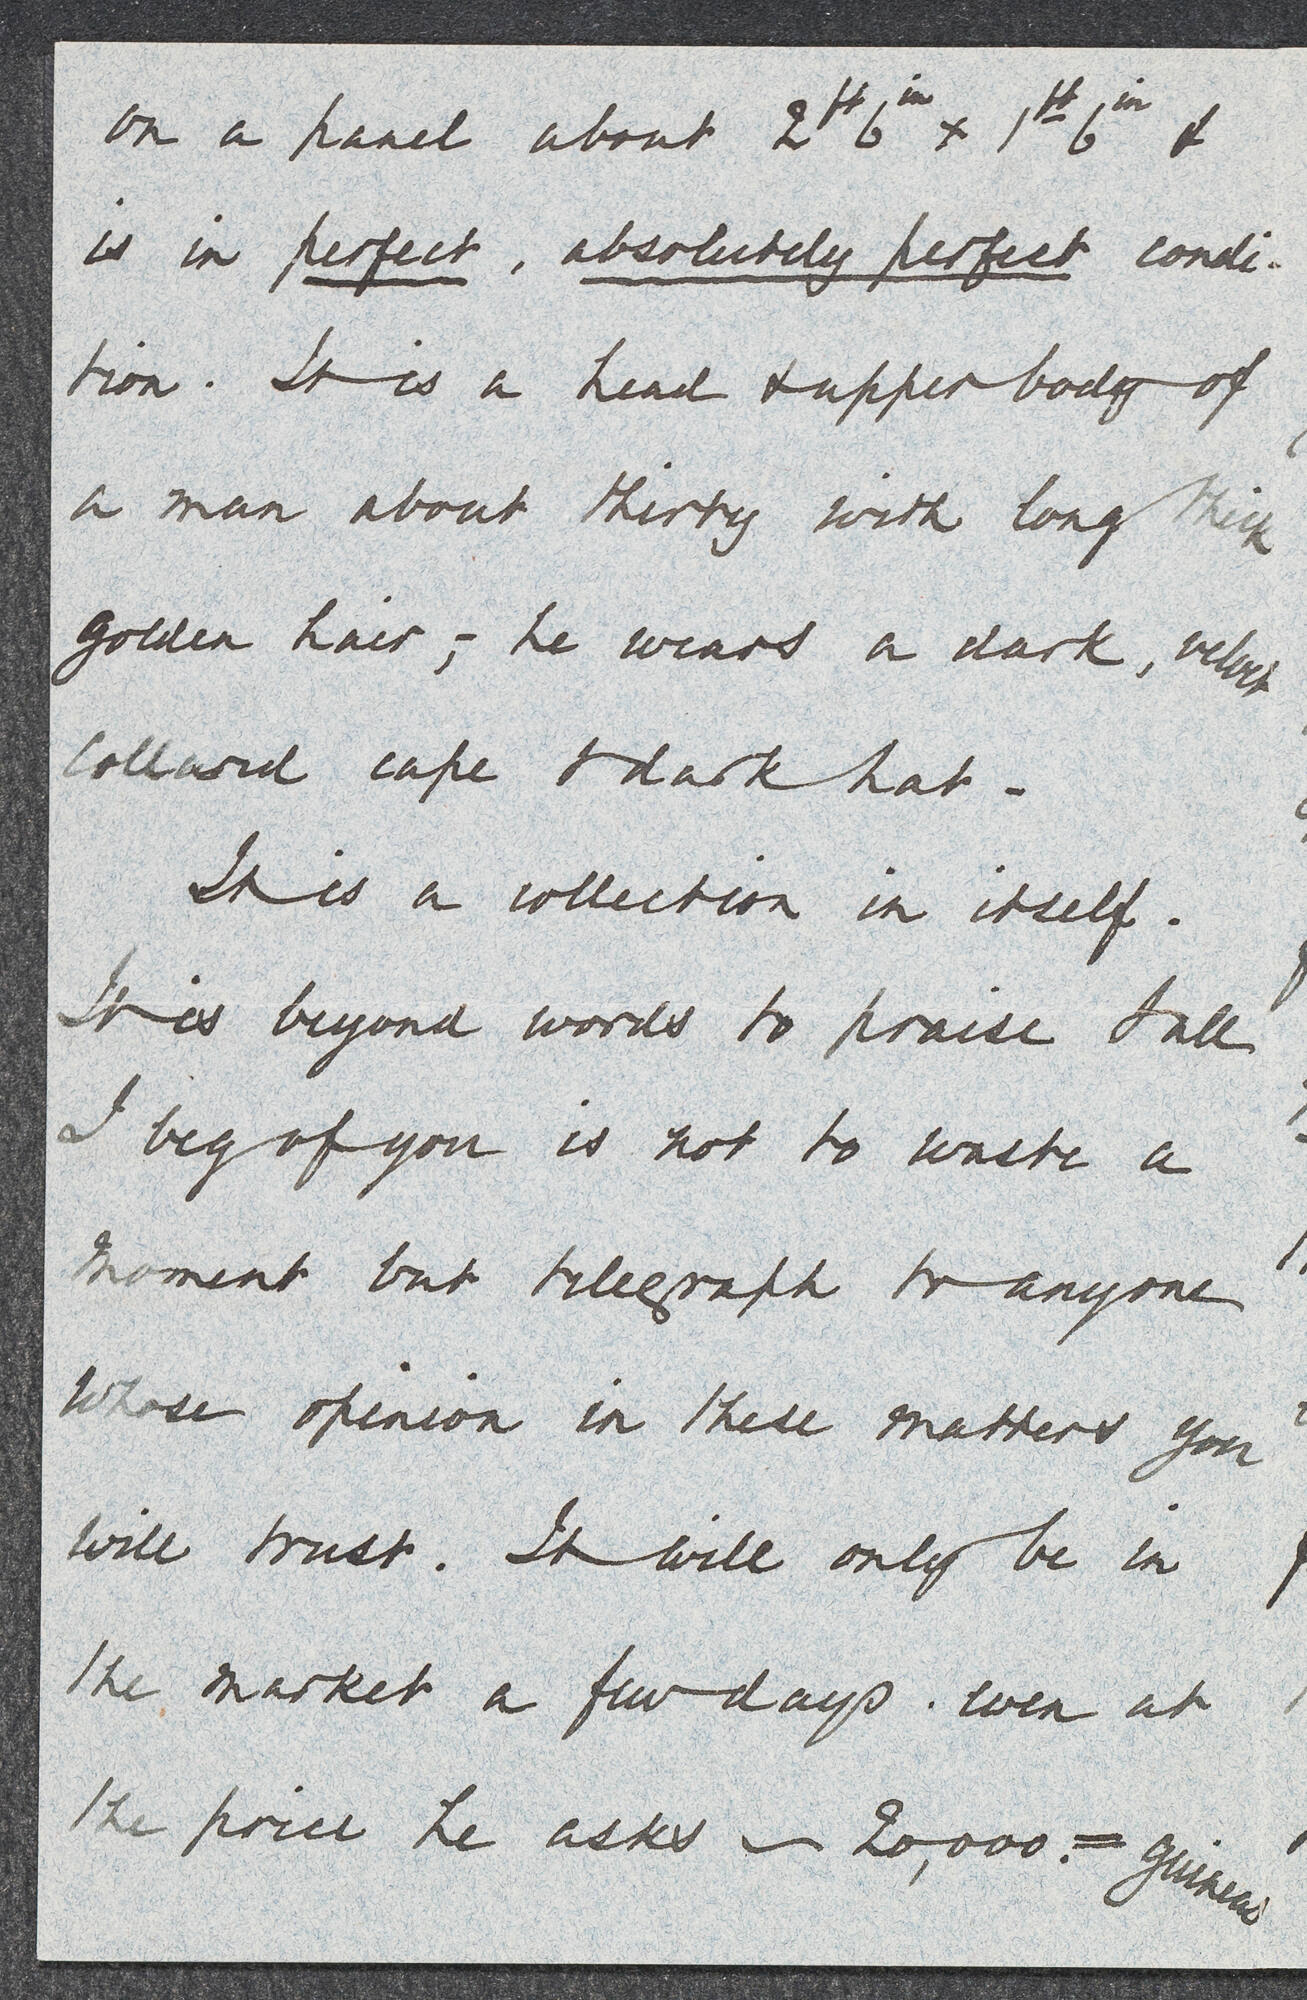 on a panel about 2ft 6in x 1ft 6in &
is in perfect, absolutely perfect condi-
tion. It is a head & upper body of
a man about thirty with long thick
golden hair; - he wears a dark, velvet
collared cape & dark hat -
It is a collection in itself.
It is beyond words to praise & all
I beg of you is not to waste a
moment but telegraph to anyone
whose opinion in these matters you
will trust. It will only be in
the market a few days. even at
the price he asks — 20,000.= guineas